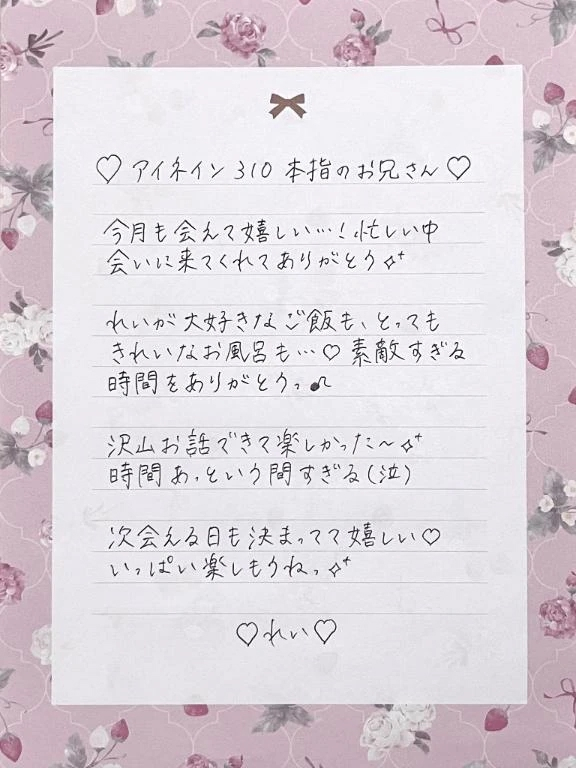 ♡ アイネイン 310 本指のお兄さん ♡
今月も会えて嬉しい…! 忙しい中
会いに来てくれてありがとう✧⁺
れいが大好きなご飯も、とっても
きれいなお風呂も…♡ 素敵すぎる
時間をありがとうっ♪
沢山お話できて楽しかった〜✧⁺
時間あっという間すぎる(泣)
次会える日も決まってて嬉しい♡
いっぱい楽しもうねっ✧⁺
♡れい♡